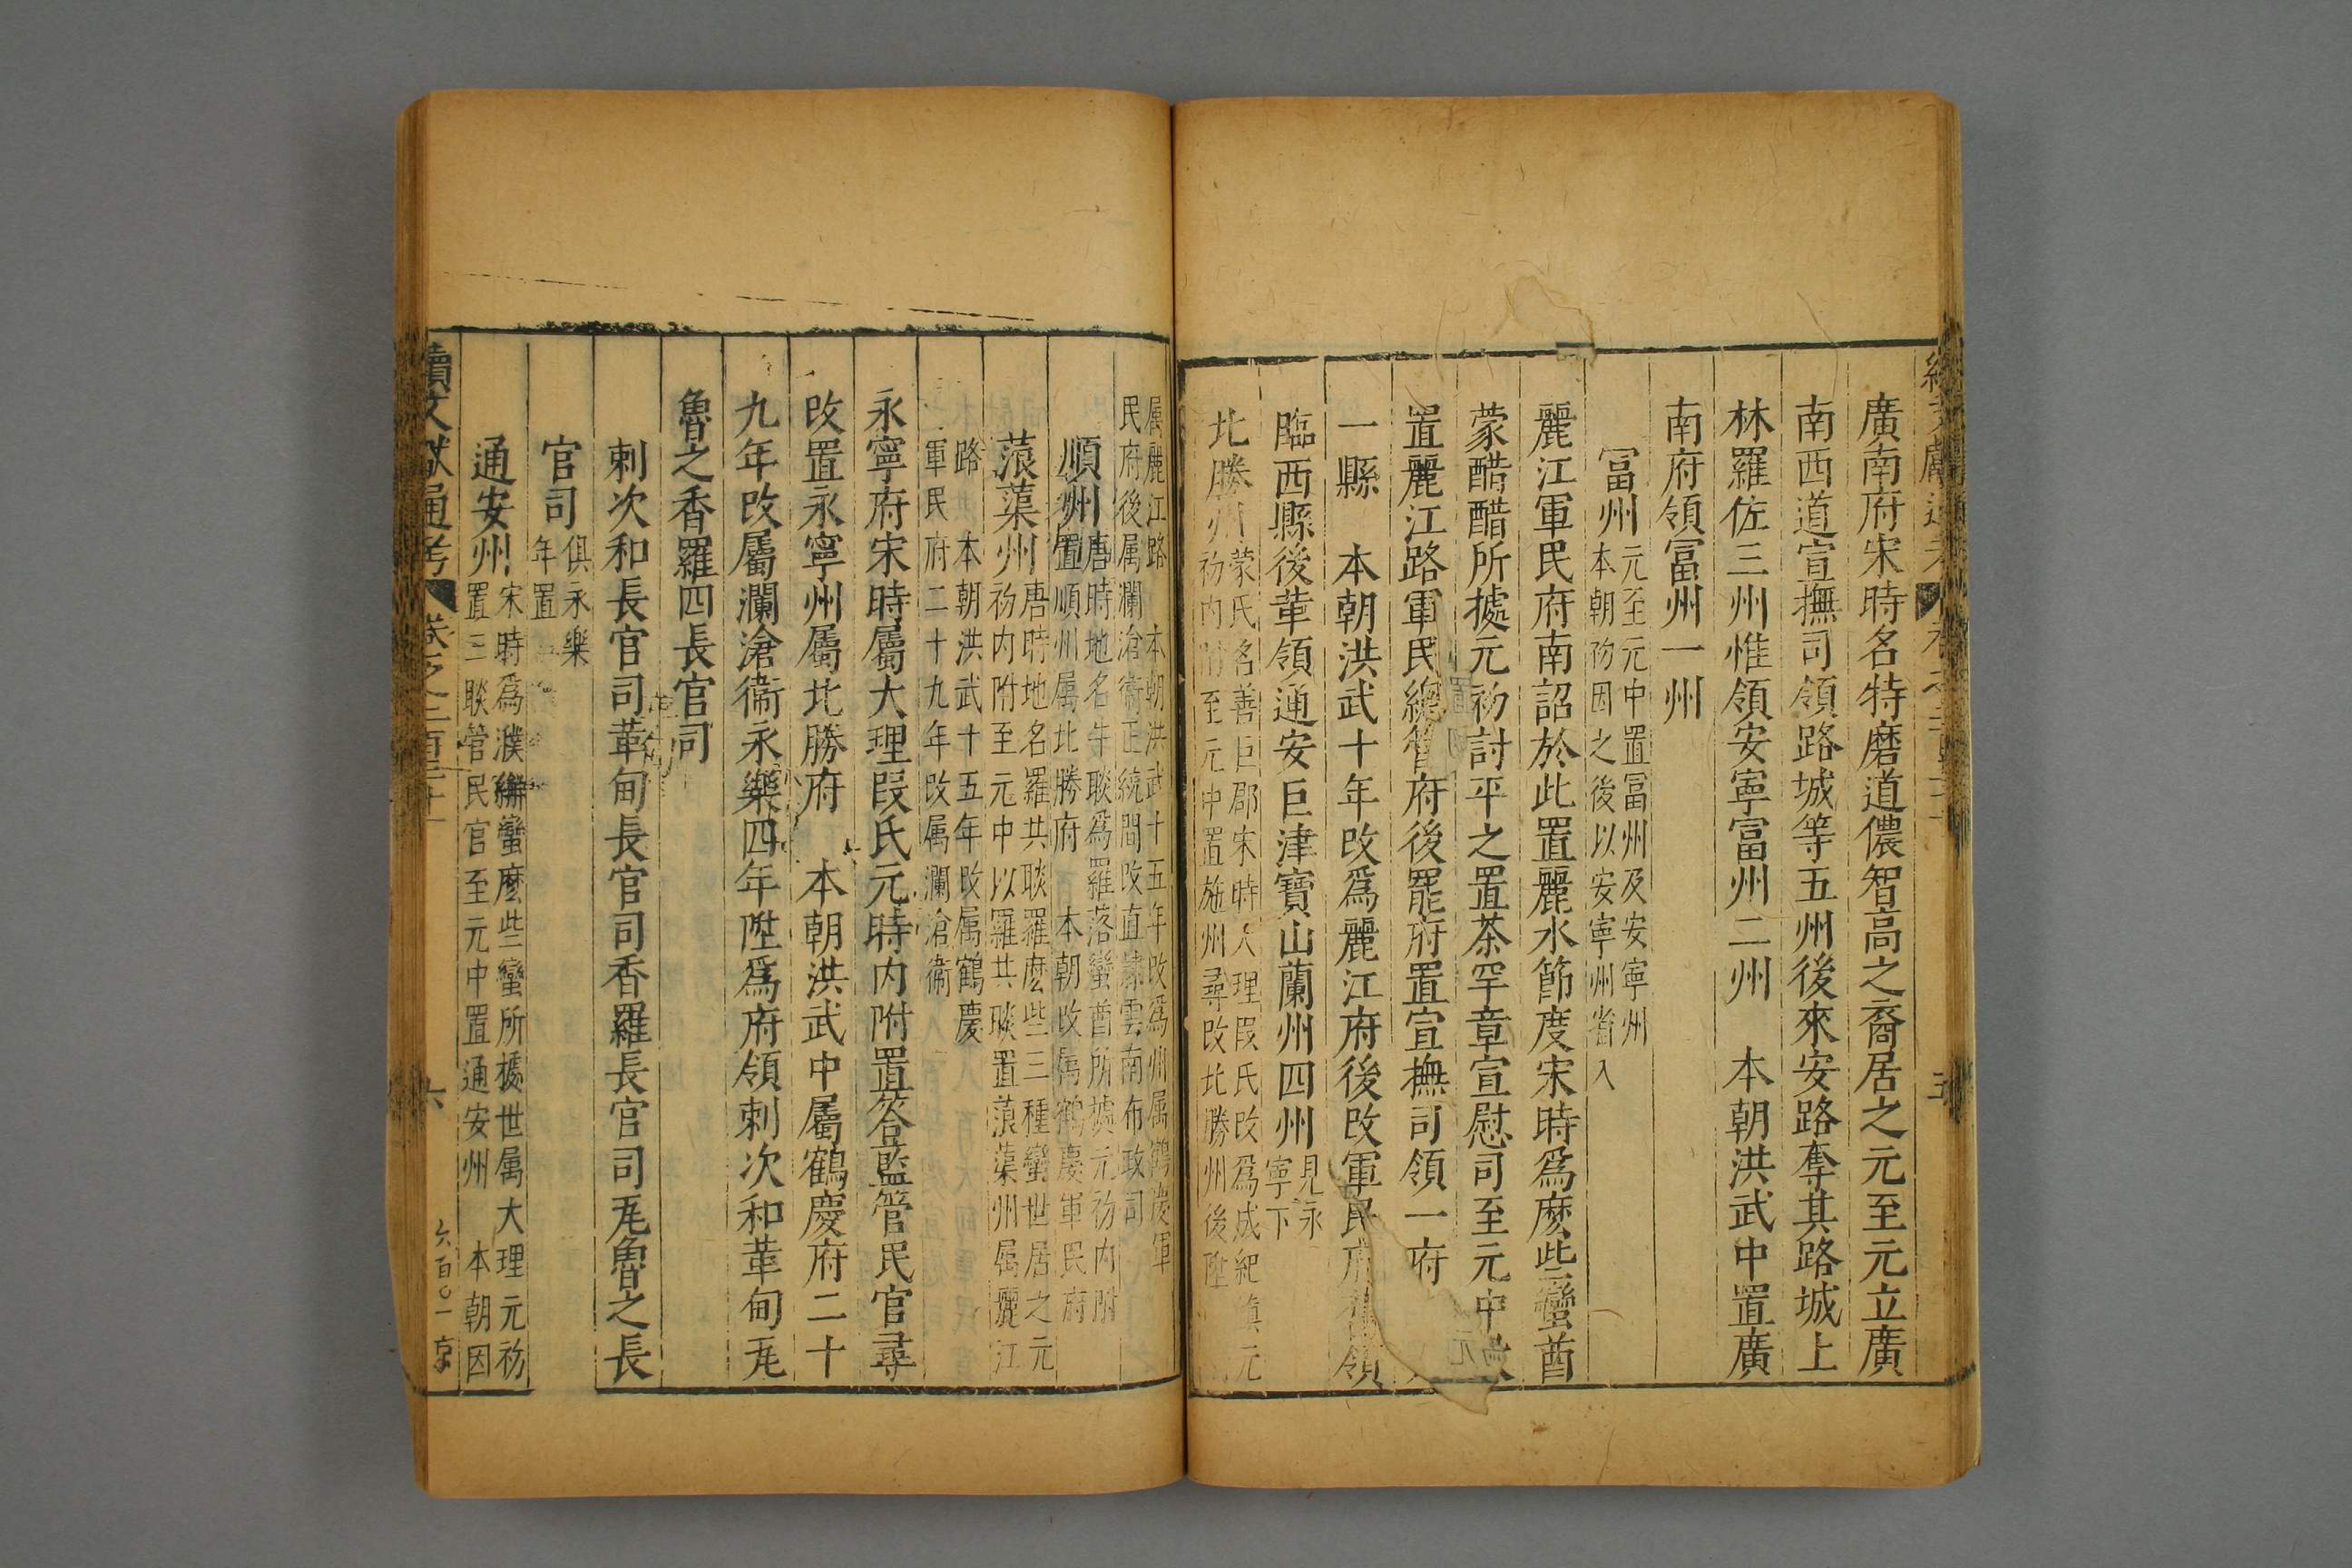 廣南府宋時名特磨道儂智高之裔居之元至元立廣
南西道宣撫司領路城等五州後來安路奪其路城上
林羅佐三州惟領安寧富州二州　本朝洪武中置廣
南府領冨州一州
冨州
元至元中置冨州及安寧州
本朝初因之後以安寧州省入
麗江軍民府南詔於此置麗水節度宋時爲麽些蠻酋
蒙醋醋所據元初討平之置茶罕章宣慰司至元中
置麗江路軍民總管府後罷府置宣撫司領一府
一縣　本朝洪武十年改爲麗江府後改軍民府領
臨西縣後革領通安巨津寶山蘭州四州
見永
寧下
北勝州
蒙氏名善巨郡宋時大理段氏改爲成紀鎮元
初內附至元中置施州尋改北勝州後陞
属麗江路　本朝洪武十五年改爲州属鶴慶軍
民府後属瀾滄衞正統間改直隸雲南布政司
順州
唐時地名牛賧爲羅落蠻酋所據元初內附
置順州属北勝府　本朝改属鶴慶軍民府
蒗蕖州
唐時地名羅共賧羅麽些三種蠻世居之元
初內附至元中以羅共賧置蒗蕖州属麗江
路　本朝洪武十五年改属鶴慶
軍民府二十九年改属瀾滄衞
永寧府宋時屬大理段氏元時內附置答藍管民官尋
改置永寧州屬北勝府　本朝洪武中屬鶴慶府二十
九年改屬瀾滄衞永樂四年陞爲府領剌次和革甸瓦
魯之香羅四長官司
剌次和長官司革甸長官司香羅長官司瓦魯之長
官司
俱永樂
年置
通安州
宋時爲濮繲蠻麽些蠻所據世属大理元初
置三賧管民官至元中置通安州　本朝因
續文獻通考
六
六百〇一